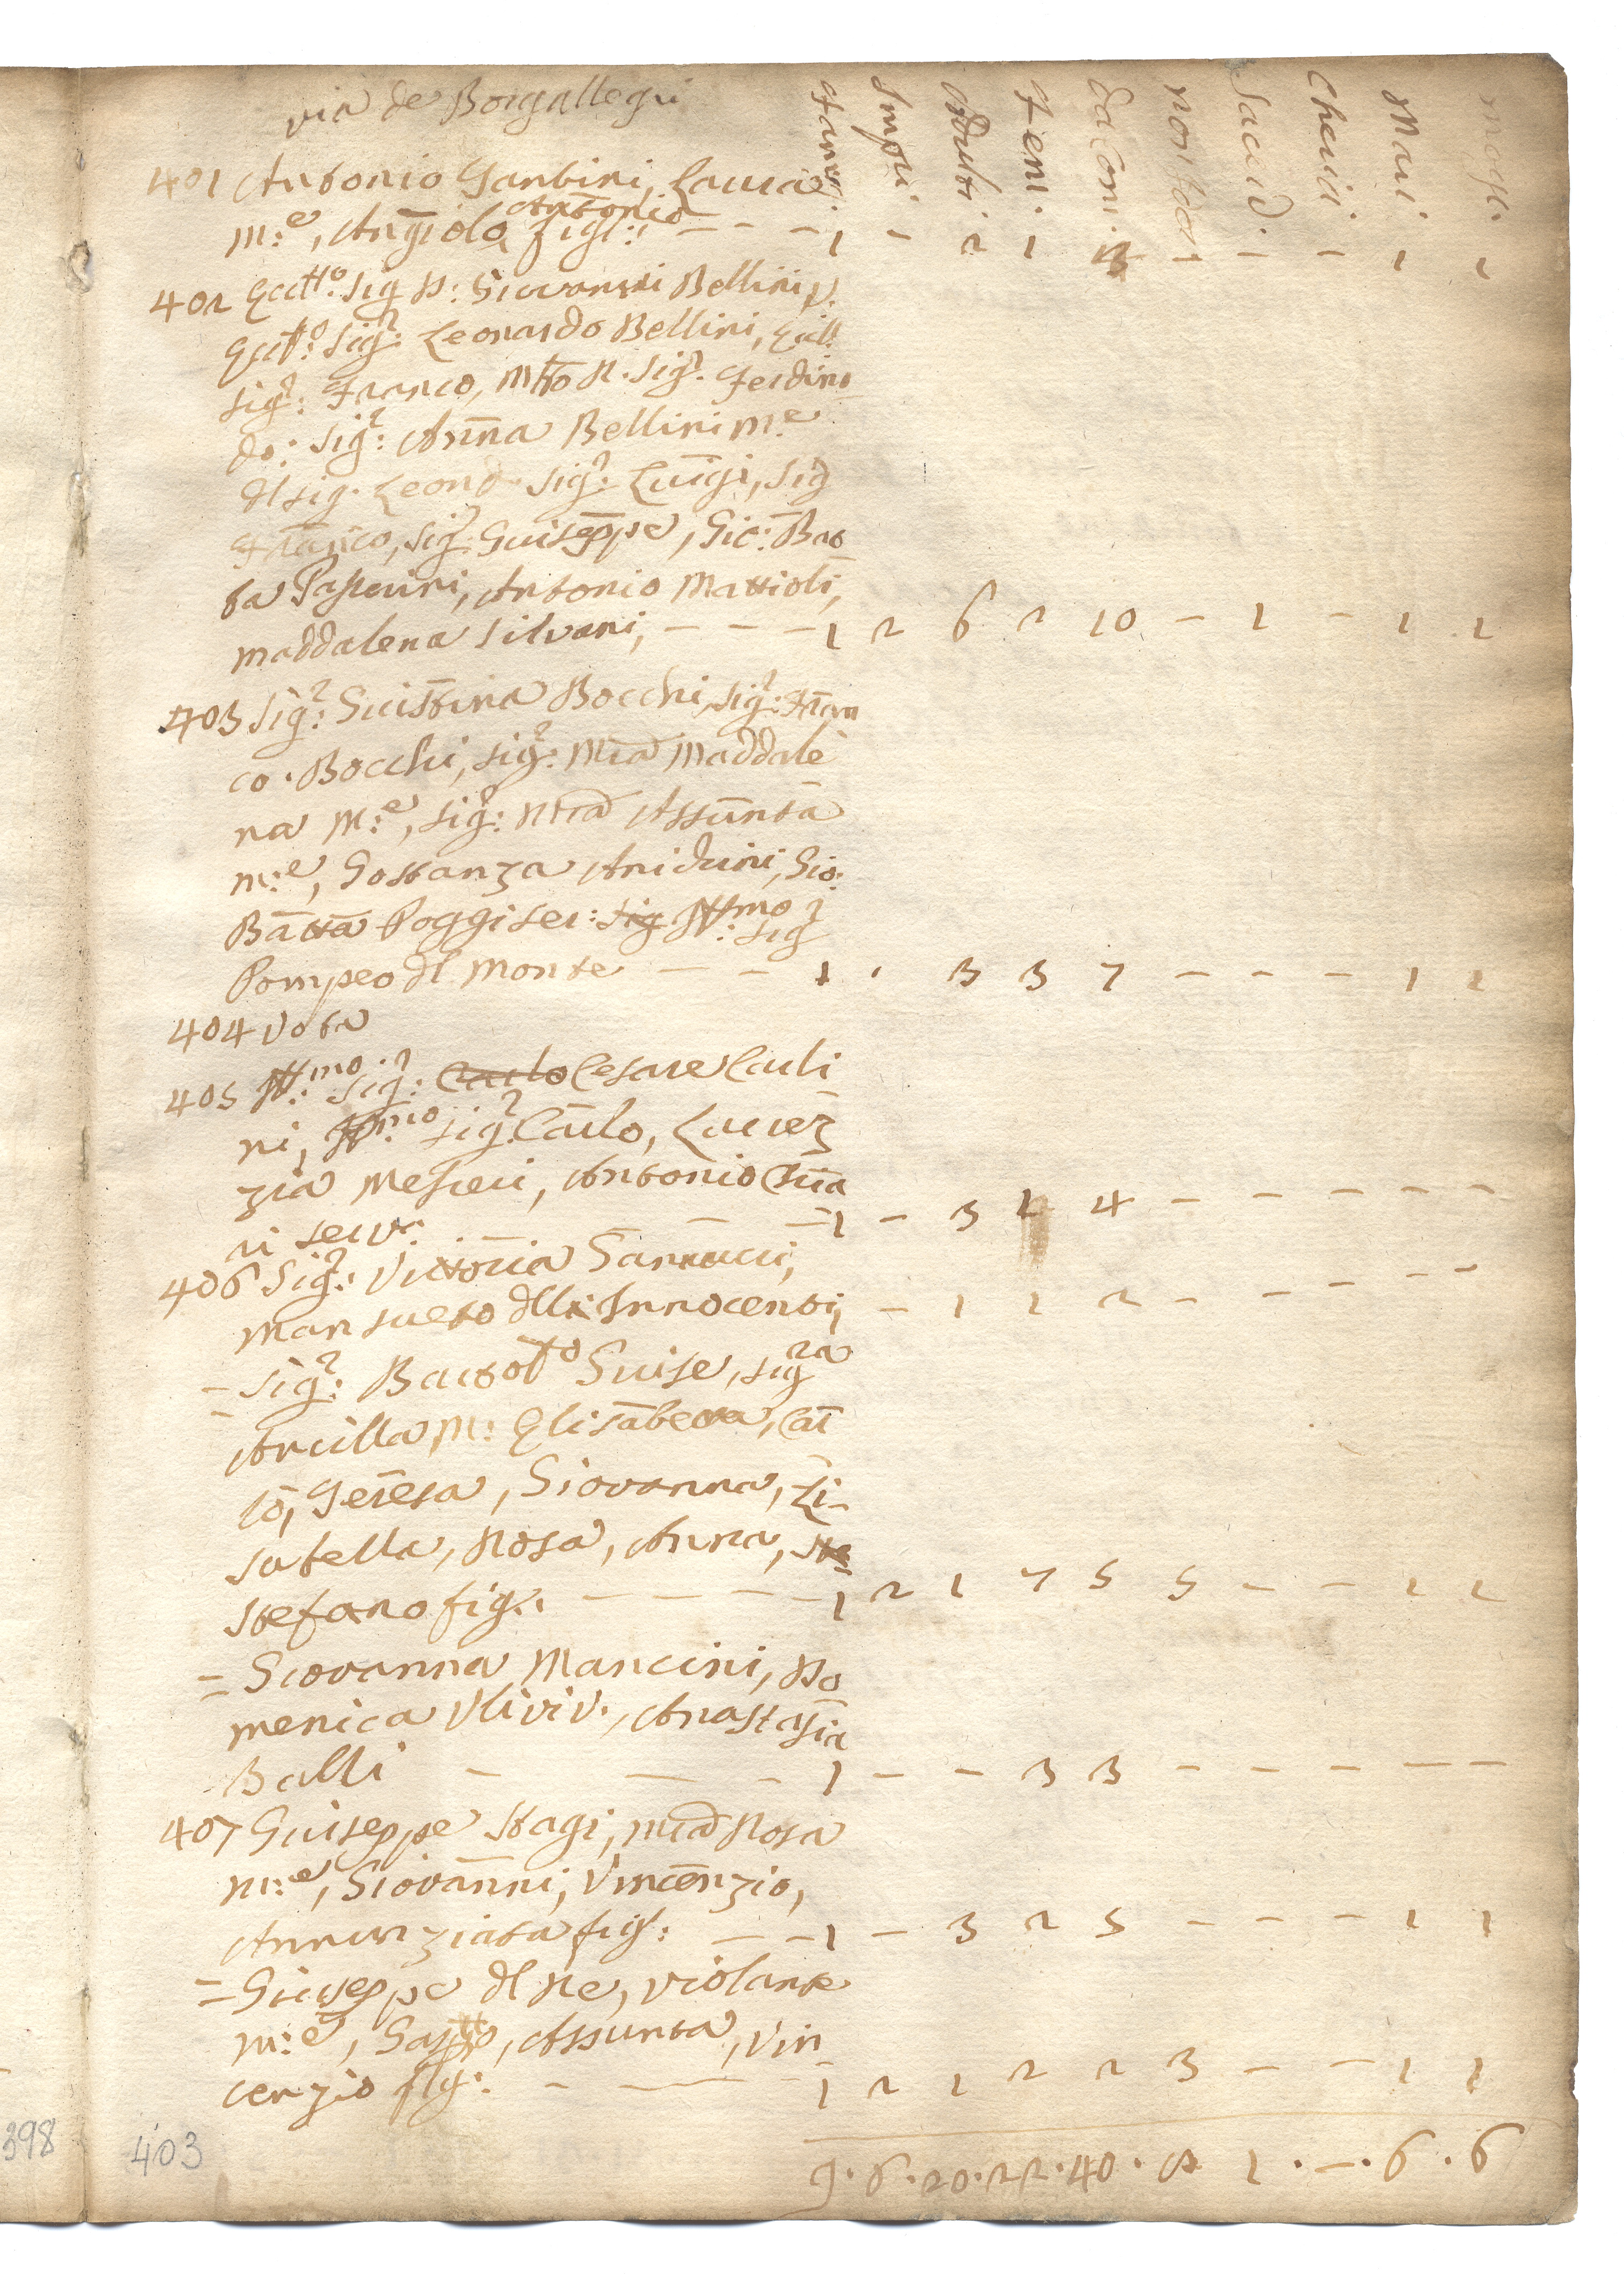 via de Borgallegri
Fami. Impu. Adulti Fem. da Com. non da Com. Sacerd. Cherici Mari mogl.
401 Antonio Gantini, Laura
m:e, Angiola, Antonio figl: - - - 1 - 2 1 3 - - - 1 1
402 Ecctto. Sig D: Giovanni Bellini,
Ecctto: Sig:r Leonardo Bellini, Ecctt.
Sig:r Franco, Mtro R. Sig.r Ferdina
do: Sig:r Anna Bellini m:e
dl sig. Leond. sig:r Luigi, Sig
Franco, Sig:r Giuseppe, Gio: Bat
ta Pasquini, Antonio Mattioli,
maddalena Silvani, - - - 1 2 6 2 10 - 1 - 1 1
403 Sig:r Giustina Bocchi, Sig:r Fran
co. Bocchi, Sig:r Mia Maddale
na m:e, Sig:r Mria Assunta
m:e, Gostanza Anichini, Gio:
Batta Poggi ser: Sig Ill:mo Sig
Pompeo dl Monte - - 1 . 3 3 7 - - - 1 1
404 Vota
405 Ill:mo Sig:r Carlo Cesare Carli
ni, Ill:mo Sig:r Carlo, Lucrez
zia Mescui, Antonio
ri serv: - - 1 - 3 1 4 - - - - -
406 Sig:r Vittoria Santucci,
Mansueto dlli Innocenti, - 1 1 2 - - - - -
- Sig:r Bartolo Guise, Sigra
Ancilla m: Elisabetta, Car
lo, Teresa, Giovanna, Li-
sabella, Rosa, Anna, Ste
Stefano fig: - - - - 1 2 1 7 5 5 - - 1 1
= Giovanna Mancini, Do
menica Ulivi V., Anastasia
Balli - - - 1 - - 3 3 - - - - -
407 Giuseppe Stagi, Mria Rosa
m:e, Giovanni, Vincenzio,
Annunziata figl: - - 1 - 3 2 5 - - - 1 1
= Giuseppe dl Re, Violante
m:e, Assunta, Vin
cenzio fig: - - 1 2 1 2 2 3 - - 1 1
9 . 6 . 20 . 22 . 40 . 8 1 . - . 6 . 6
398
403